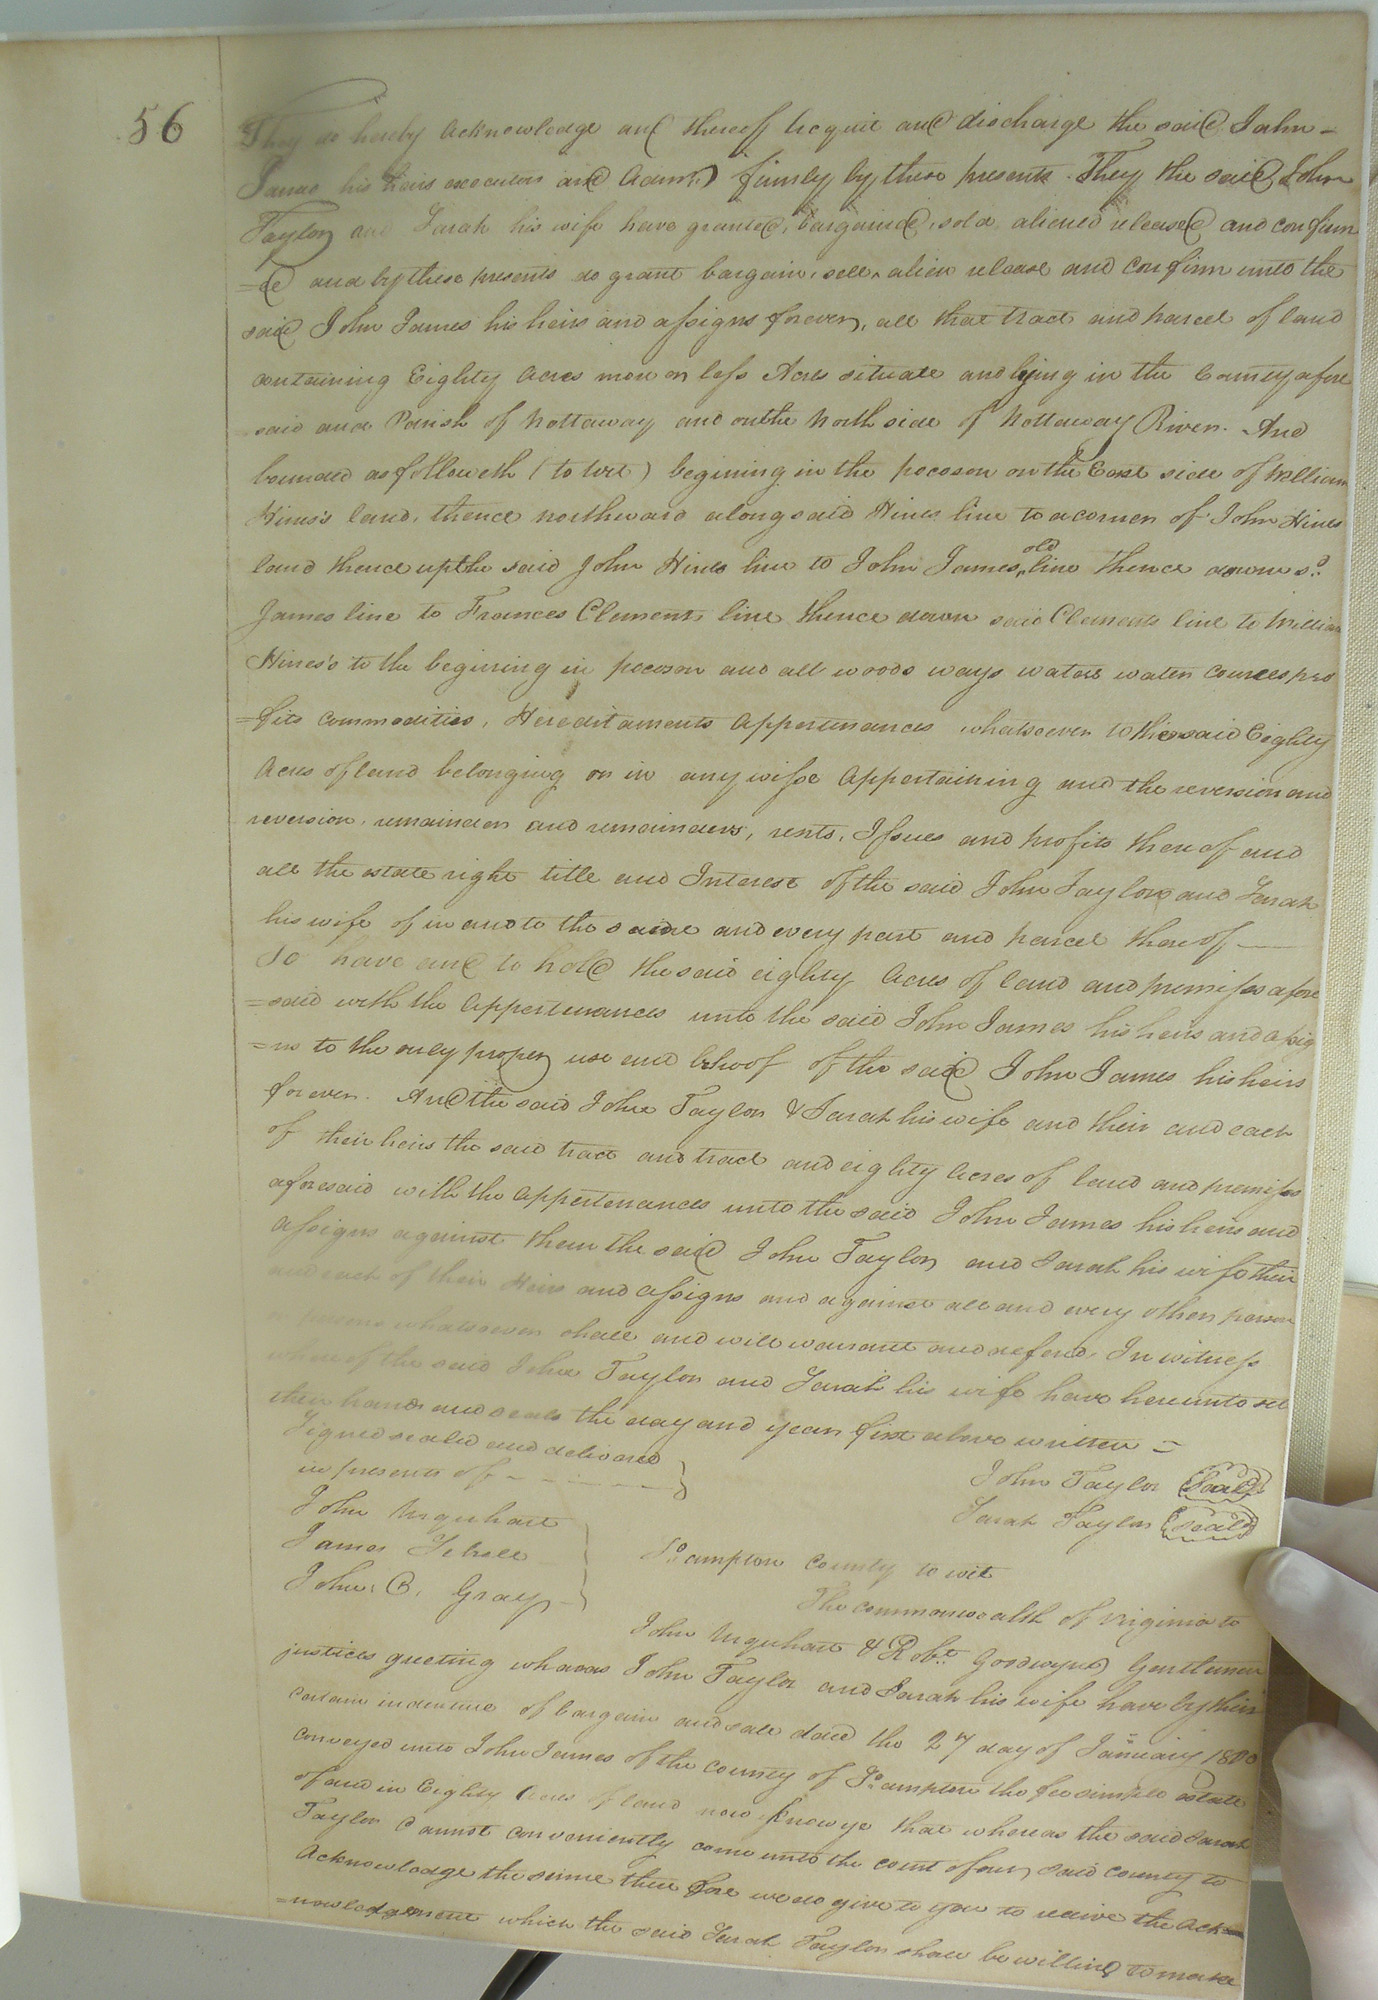 56
They do hereby Acknowledge and thereof Acquit and discharge the said John -
James his heirs executors and Admrs) firmly by these presents. They the said John
Taylor and Sarah his wife have granted, bargained, sold aliened released and confirm
=ed and by these presents do grant bargain, sell, alien release and confirm unto the
said John James his heirs and assigns forever, all that tract and parcel of land
containing Eighty Acres more or less Acres situate and lying in the County afore
=said and Parish of Nottaway and on the North side of Nottaway River. And
bounded as followeth (to wit) begining in the pocoson on the East side of William
Hines's land, thence northward along said Hines line to a corner of John Hines
land thence up the said John Hines line to John James, old line thence down sd.
James line to Frances Clements line thence down said Clements line to William
Hines's to the begining in pocoson and all woods ways waters water courses pro
=fits commodities, Hereditaments Appertenances whatsoever to the said Eighty
Acres of land belonging or in any wise Appertaining and the reversion and
reversion, remainder and remainders, rents, Issues and profits there of and
all the estate right title and Interest of the said John Taylor and Sarah
his wife of in and to the same and every part and parcel there of —
To have and to hold the said eighty Acres of land and premises afore
=said with the Appertenances unto the said John James his heirs and assig
=ns to the only proper use and behoof of the said John James his heirs
forever. And the said John Taylor & Sarah his wife and their and each
of their heirs the said tract and tract and eighty Acres of land and premises
aforesaid with the Appertenances unto the said John James his heirs and
assigns against them the said John Taylor and Sarah his wife their
and each of their Heirs and assigns and against all and every other person
or persons whatsoever shall and will warrant and defend, In witness
whereof the said John Taylor and Sarah his wife have hereunto set
their hands and seals the day and year first above written =
Signed sealed and delivered
in presents of - - - - - -
John Taylor (Seal)
Sarah Taylor (seal)
John Urquhart
James
John. B. Gray
So.ampton County to wit
The commonwealth of Virginia to
John Urquhart & Robt. Goodwyn) Gentlemen
justices greeting whereas John Taylor and Sarah his wife have by their
certain indenture of bargain and sale dated the 27 day of January 1800
conveyed unto John James of the county of So.ampton the fee simple estate
of and in Eighty Acres of land now know ye that whereas the said Sarah
Taylor Cannot conveniently come unto the court of our said county to
Acknowledge the same there fore we do give to you to receive the Ack=
=nowledgement which the said Sarah Taylor shall be willing to make